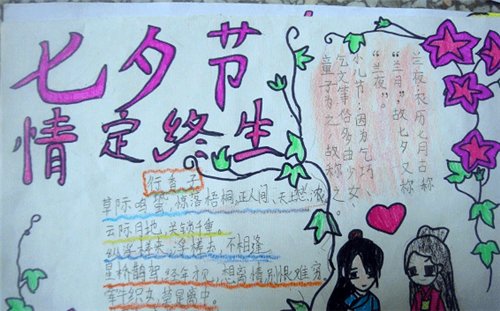 七夕节
情定终生
兰夜:农历七月古称
“兰月”,故七夕又称
“兰夜”。
小儿节:因为乞巧
乞文等俗多由少女、
童子为之,故称之。
行香子
草际鸣蛩,惊落梧桐,正人间、天上愁浓
云际月地,关锁千重。
来,浮槎去,不相逢
星桥鹊驾经年才见,想离情别恨难穷
牵牛织女,莫是离中。